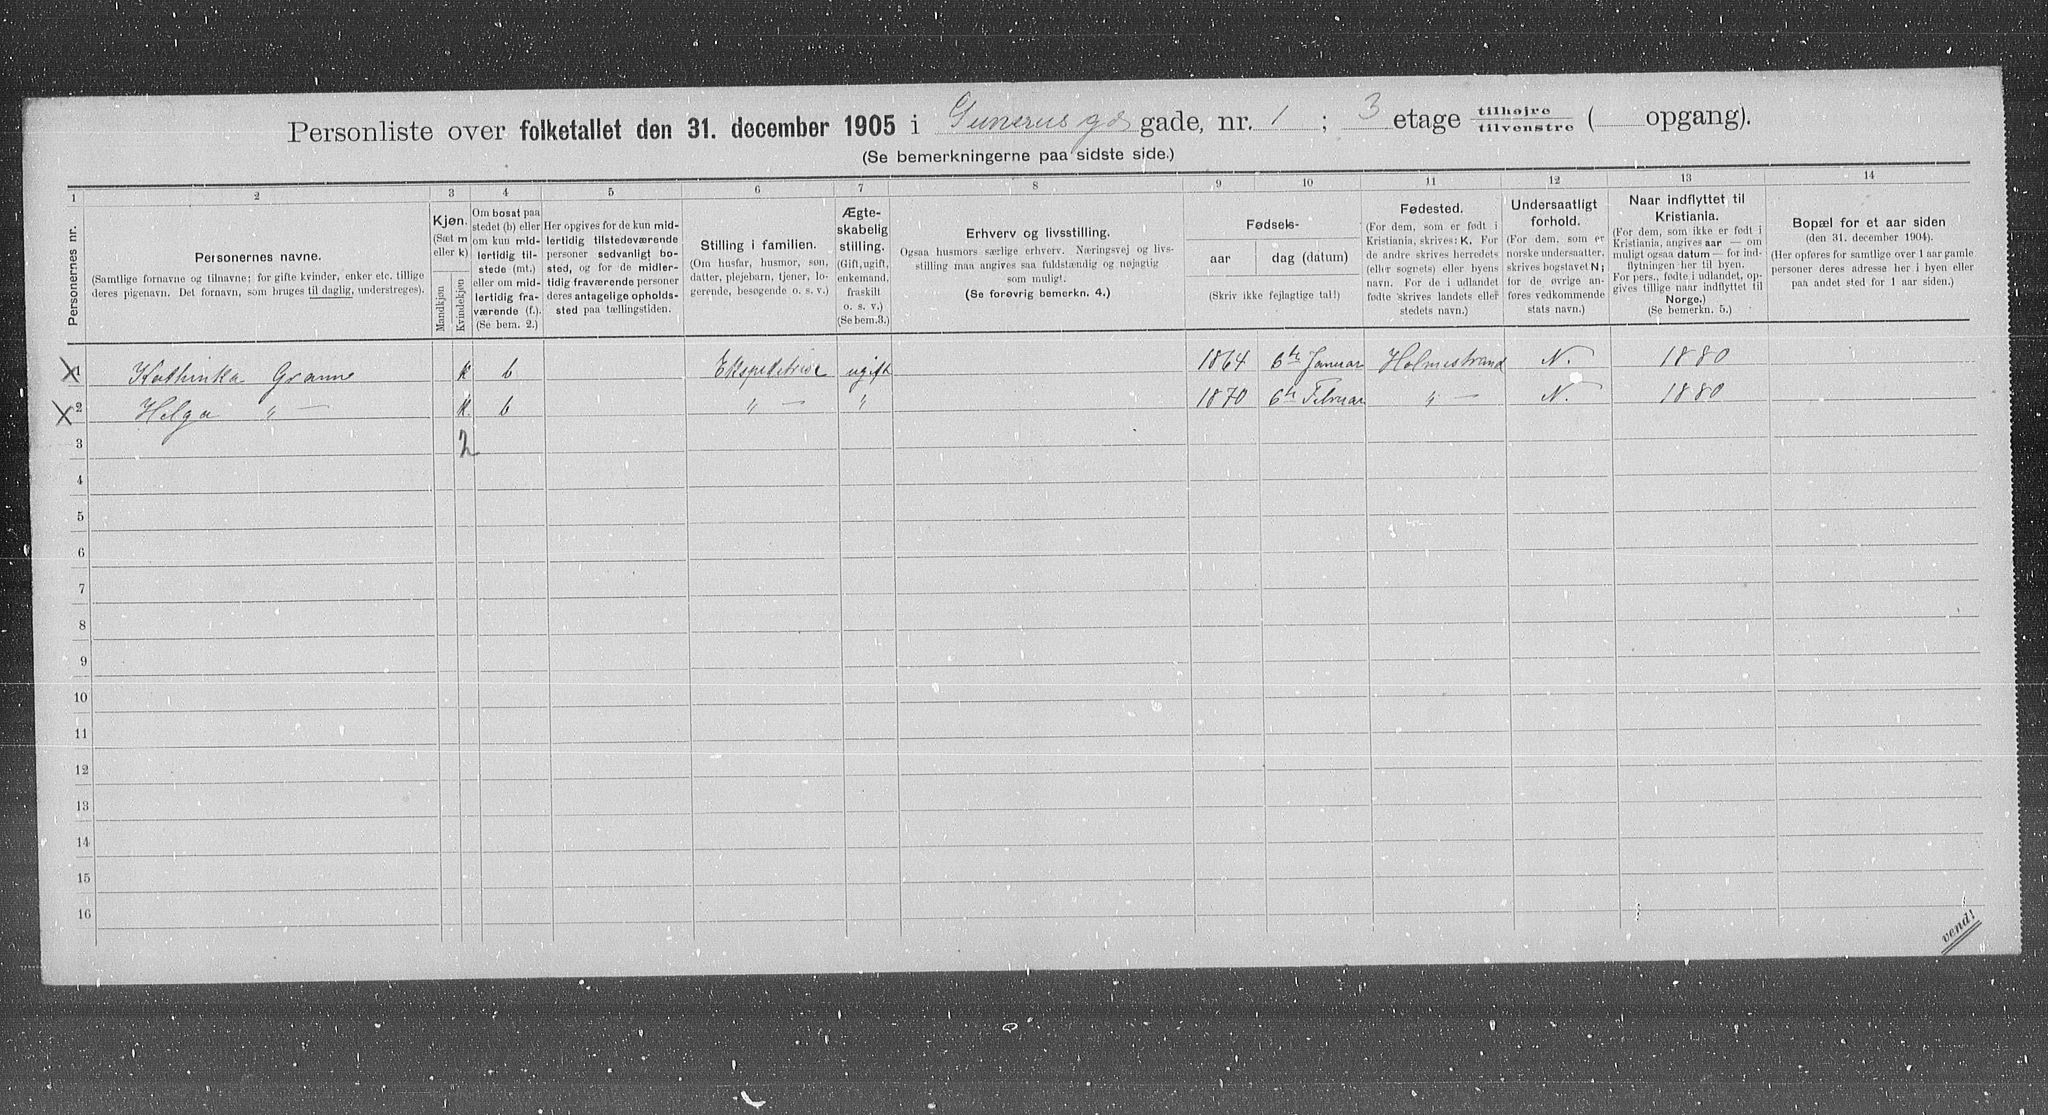 Personliste over folketallet den 31. december 1905 i Gunerus gd gade, nr. 1 ; 3 etage tilhøjre / tilvenstre ( opgang).
(Se bemerkningerne paa sidste side.)
1 2 3 4 5 6 7 8 9 10 11 12 13 14
Personernes nr.
Personernes navne.
(Samtlige fornavne og tilnavne; for gifte kvinder, enker etc. tillige
deres pigenavn. Det fornavn, som bruges til daglig, understreges).
Kjøn.
(Sæt m
eller k)
Mandkjøn
Kvindekjøn
Om bosat paa
stedet (b) eller
om kun mid-
lertidig til-
stede (mt.)
eller om mid-
lertidig fra-
værende (f.).
(Se bem. 2.)
Her opgives for de kun mid-
lertidig tilstedeværende
personer sedvanligt bo-
sted, og for de midler-
tidig fraværende personer
deres antagelige opholds-
sted paa tællingstiden.
Stilling i familien.
(Om husfar, husmor, søn,
datter, plejebarn, tjener, lo-
gerende, besøgende o. s. v.)
Ægte-
skabelig
stilling.
(Gift, ugift,
enkemand,
fraskilt
o. s. v.)
(Se bem.3.)
Erhverv og livsstilling.
Ogsaa husmors særlige erhverv. Næringsvej og livs-
stilling maa angives saa fuldstændig og nøjagtig
som muligt.
(Se forøvrig bemerkn. 4.)
Fødsels-
aar dag (datum)
(Skriv ikke fejlagtige tal!)
Fødested.
(For dem, som er født i
Kristiania, skrives: K. For
de andre skrives herredets
(eller sognets) eller byens
navn. For de i udlandet
fødte skrives landets eller
stedets navn.)
Undersaatligt
forhold.
(For dem, som er
norske undersaatter,
skrives bogstavet N;
for de øvrige an-
føres vedkommende
stats navn.)
Naar indflyttet til
Kristiania.
(For dem, som ikke er født i
Kristiania, angives aar — om
muligt ogsaa datum — for ind-
flytningen her til byen.
For pers., fødte i udlandet, op-
gives tillige naar indflyttet til
Norge.)
(Se bemerkn. 5.)
Bopæl for et aar siden
(den 31. december 1904).
(Her opføres for samtlige over 1 aar gamle
personer deres adresse her i byen eller
paa andet sted for 1 aar siden.)
1 Kathinka Gramne k b Ekspeditrise ugift 1864 6te Januar Holmestrand N. 1880
2 Helga " — k. b " — " 1870 6te Februar " — N. 1880
3 2
4
5
6
7
8
9
10
11
12
13
14
15
16
vend!